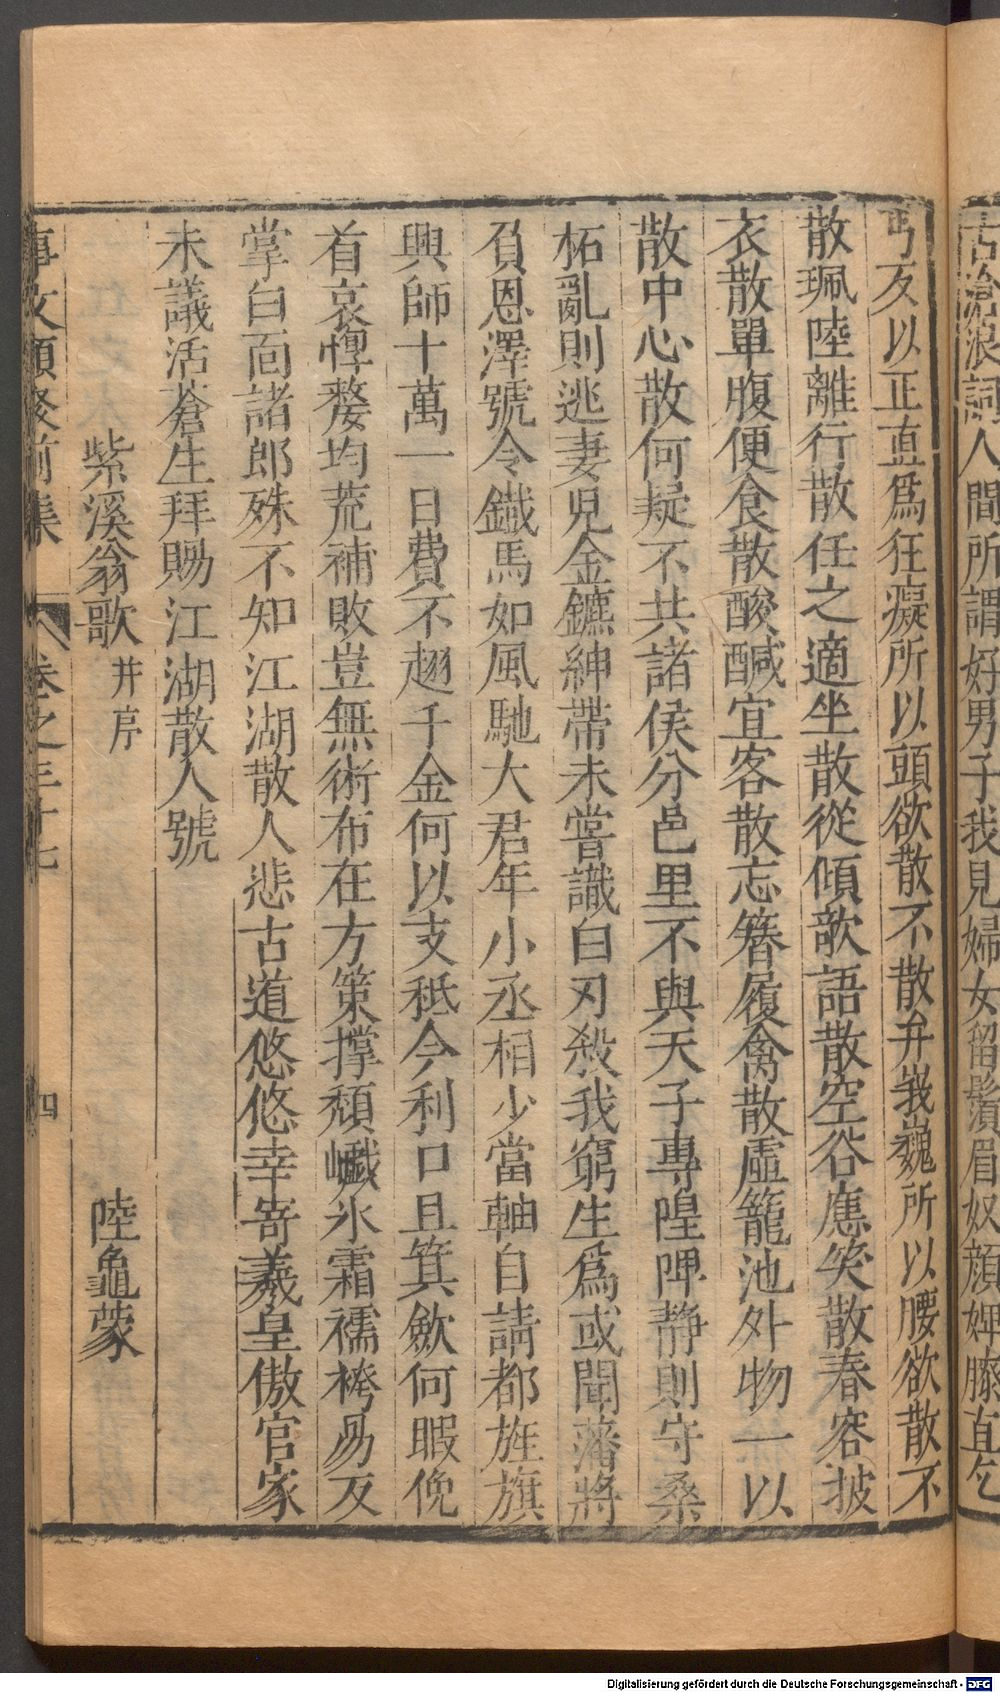 古滄浪詞人間所謂好男子我見婦女留鬚眉奴顏婢膝直乞
丐反以正直爲狂癡所以頭欲散不散弁峩巍所以腰欲散不
散珮陸離行散任之適坐散從傾欹語散空谷應笑散春容披
衣散單腹便食散酸醎宜客散忘簪履禽散虛籠池外物一以
散中心散何疑不共諸侯分邑里不與天子專隍陴静則守桑
柘亂則逃妻兒金鑣紳帶未嘗識白刃殺我窮生爲或聞藩將
負恩澤號令鐵馬如風馳大君年小丞相少當軸自請都旌旗
興師十萬一日費不趐千金何以支秪今利口且箕斂何暇俛
首哀惸嫠均荒補敗豈無術布在方策撑頽巇氷霜襦袴易反
掌白面諸郎殊不知江湖散人悲古道悠悠幸寄羲皇傲官家
未議活蒼生拜賜江湖散人號
紫溪翁歌 并序 陸龜蒙
事文類聚前集 卷之三十七 四
Digitalisierung gefördert durch die Deutsche Forschungsgemeinschaft - DFG